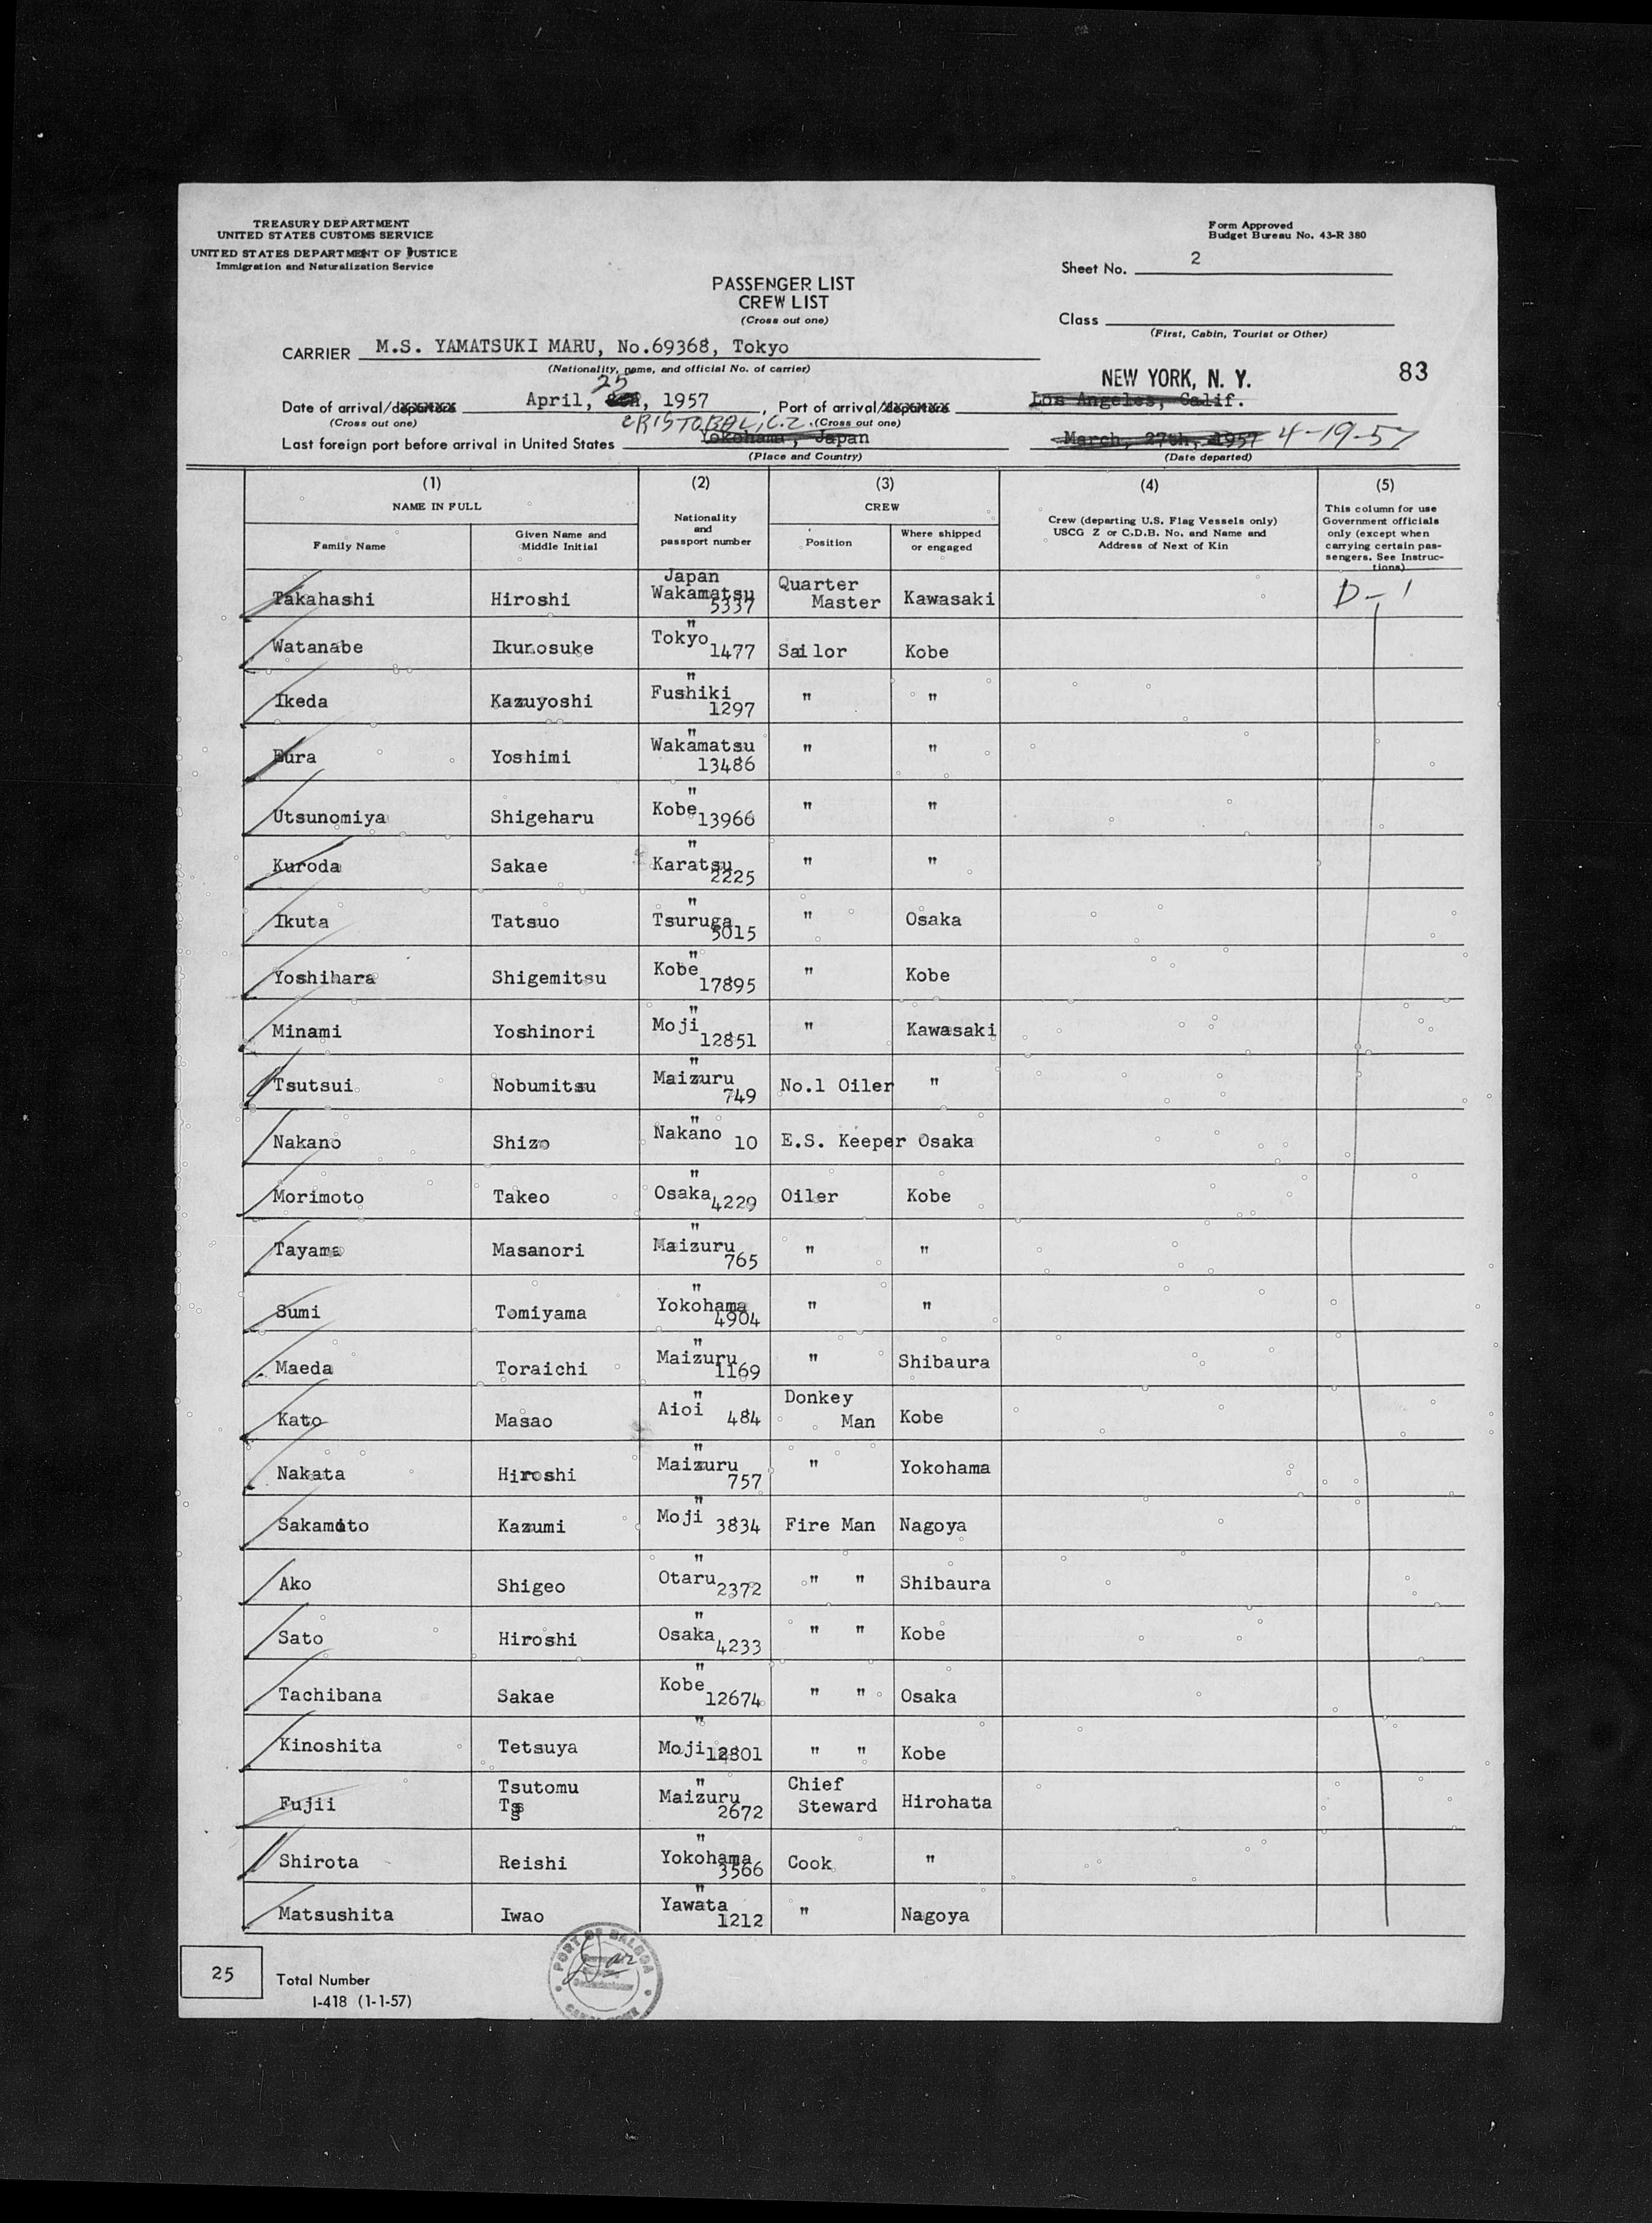 TREASURY DEPARTMENT
UNITED STATES CUSTOMS SERVICE
UNITED STATES DEPARTMENT OF JUSTICE
Immigration and Naturalization Service
Form Approved
Budget Bureau No. 43-R 380
Sheet No. 2
PASSENGER LIST
CREW LIST
(Cross out one)
Class
(First, Cabin, Tourist or Other)
CARRIER M.S. YAMATSUKI MARU, No.69368, Tokyo
(Nationality, name, and official No. of carrier)
NEW YORK, N. Y. 83
25
Date of arrival/departure April, 1957, Port of arrival/departure Los Angeles, Calif.
(Cross out one) CRISTOBAL, C.Z. (Cross out one)
Last foreign port before arrival in United States Yokohama, Japan March, 27th, 1957 4-19-57
(Place and Country) (Date departed)
(1) (2) (3) (4) (5)
NAME IN FULL Nationality and passport number CREW Crew (departing U.S. Flag Vessels only) USCG Z or C.D.B. No. and Name and Address of Next of Kin This column for use Government officials only (except when carrying certain passengers. See Instructions)
Family Name Given Name and Middle Initial Position Where shipped or engaged
Takahashi Hiroshi Japan Wakamatsu 5337 Quarter Master Kawasaki D-1
Watanabe Ikunosuke " Tokyo 1477 Sailor Kobe
Ikeda Kazuyoshi " Fushiki 1297 " "
Eura Yoshimi " Wakamatsu 13486 " "
Utsunomiya Shigeharu " Kobe 13966 " "
Kuroda Sakae " Karatsu 2225 " "
Ikuta Tatsuo " Tsuruga 5015 " Osaka
Yoshihara Shigemitsu " Kobe 17895 " Kobe
Minami Yoshinori " Moji 12851 " Kawasaki
Tsutsui Nobumitsu " Maizuru 749 No.1 Oiler "
Nakano Shizo " Nakano 10 E.S. Keeper Osaka
Morimoto Takeo " Osaka 4229 Oiler Kobe
Tayama Masanori " Maizuru 765 " "
Sumi Tomiyama " Yokohama 4904 " "
Maeda Toraichi " Maizuru 1169 " Shibaura
Kato Masao " Aioi 484 Donkey Man Kobe
Nakata Hiroshi " Maizuru 757 " Yokohama
Sakamoto Kazumi " Moji 3834 Fire Man Nagoya
Ako Shigeo " Otaru 2372 " " Shibaura
Sato Hiroshi " Osaka 4233 " " Kobe
Tachibana Sakae " Kobe 12674 " " Osaka
Kinoshita Tetsuya " Moji 12801 " " Kobe
Fujii Tsutomu " Maizuru 2672 Chief Steward Hirohata
Shirota Reishi " Yokohama 3566 Cook "
Matsushita Iwao " Yawata 1212 " Nagoya
25 Total Number
I-418 (1-1-57)
PORT OF BALBOA